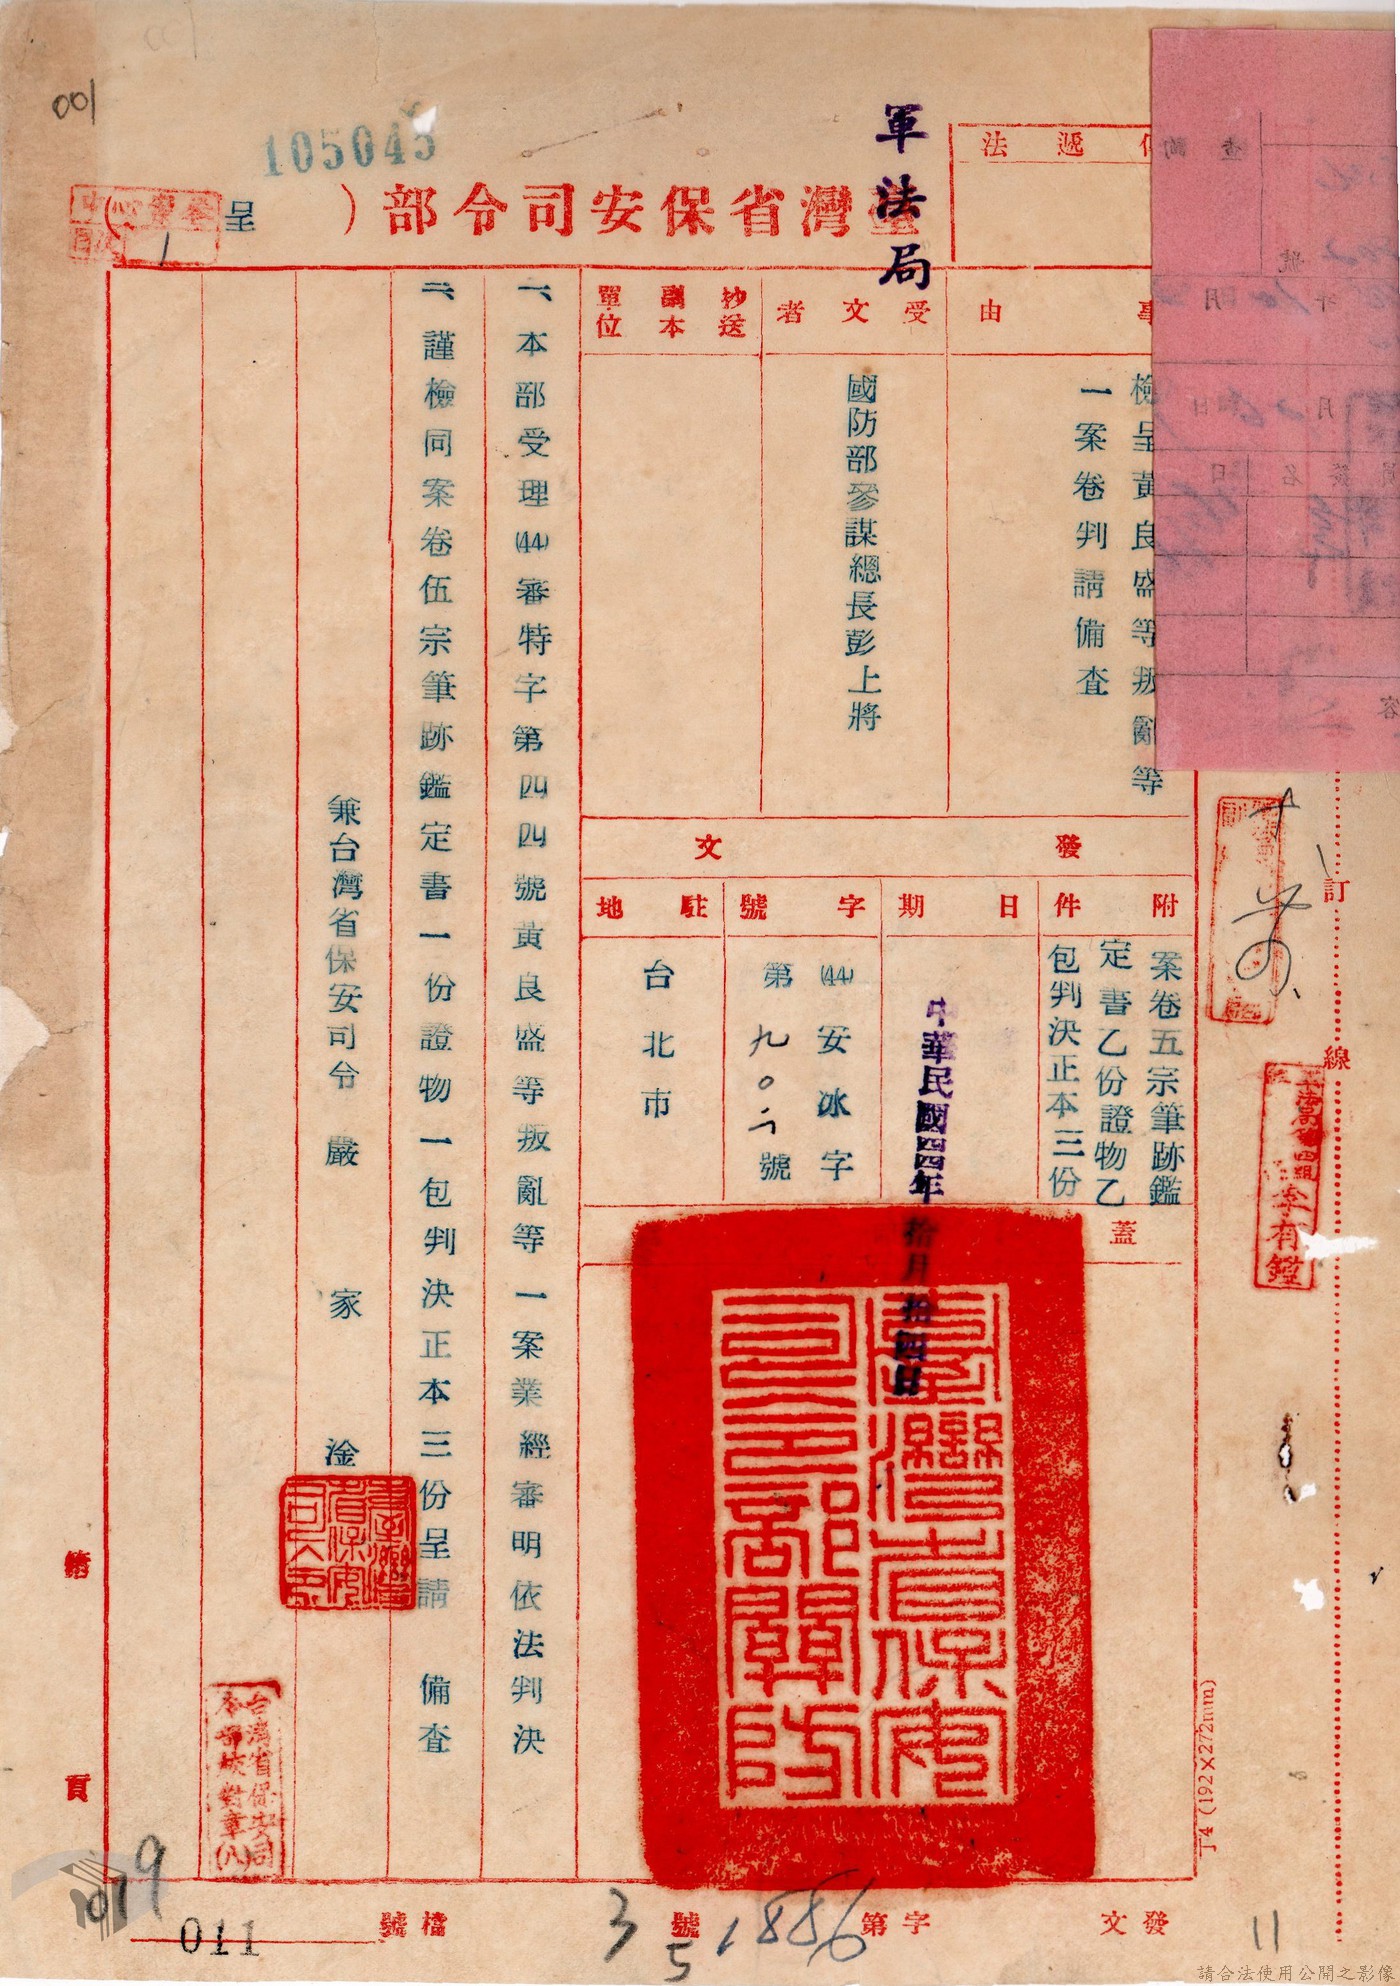 001
105045
軍法局
臺灣省保安司令部（
呈
法遞
事由
檢呈黃良盛等叛亂等
一案卷判請備查
受文者
國防部參謀總長彭上將
抄送
副本
單位
發文
附件
案卷五宗筆跡鑑
定書乙份證物乙
包判決正本三份
日期
中華民國四四年拾月拾四日
字號
(44)安冰字
第九〇六號
駐地
台北市
蓋
臺灣省保安
司令部關防
一、本部受理(44)審特字第四四號黃良盛等叛亂等一案業經審明依法判決
二、謹檢同案卷伍宗筆跡鑑定書一份證物一包判決正本三份呈請 備查
兼台灣省保安司令 嚴家淦
台灣省保安司
令部校對章(八)
訂
線
李有鑑
第
頁
丁4(192×272mm)
發文
字第
18856
號
3
5
檔號
011
1019
11
請合法使用公開之影像